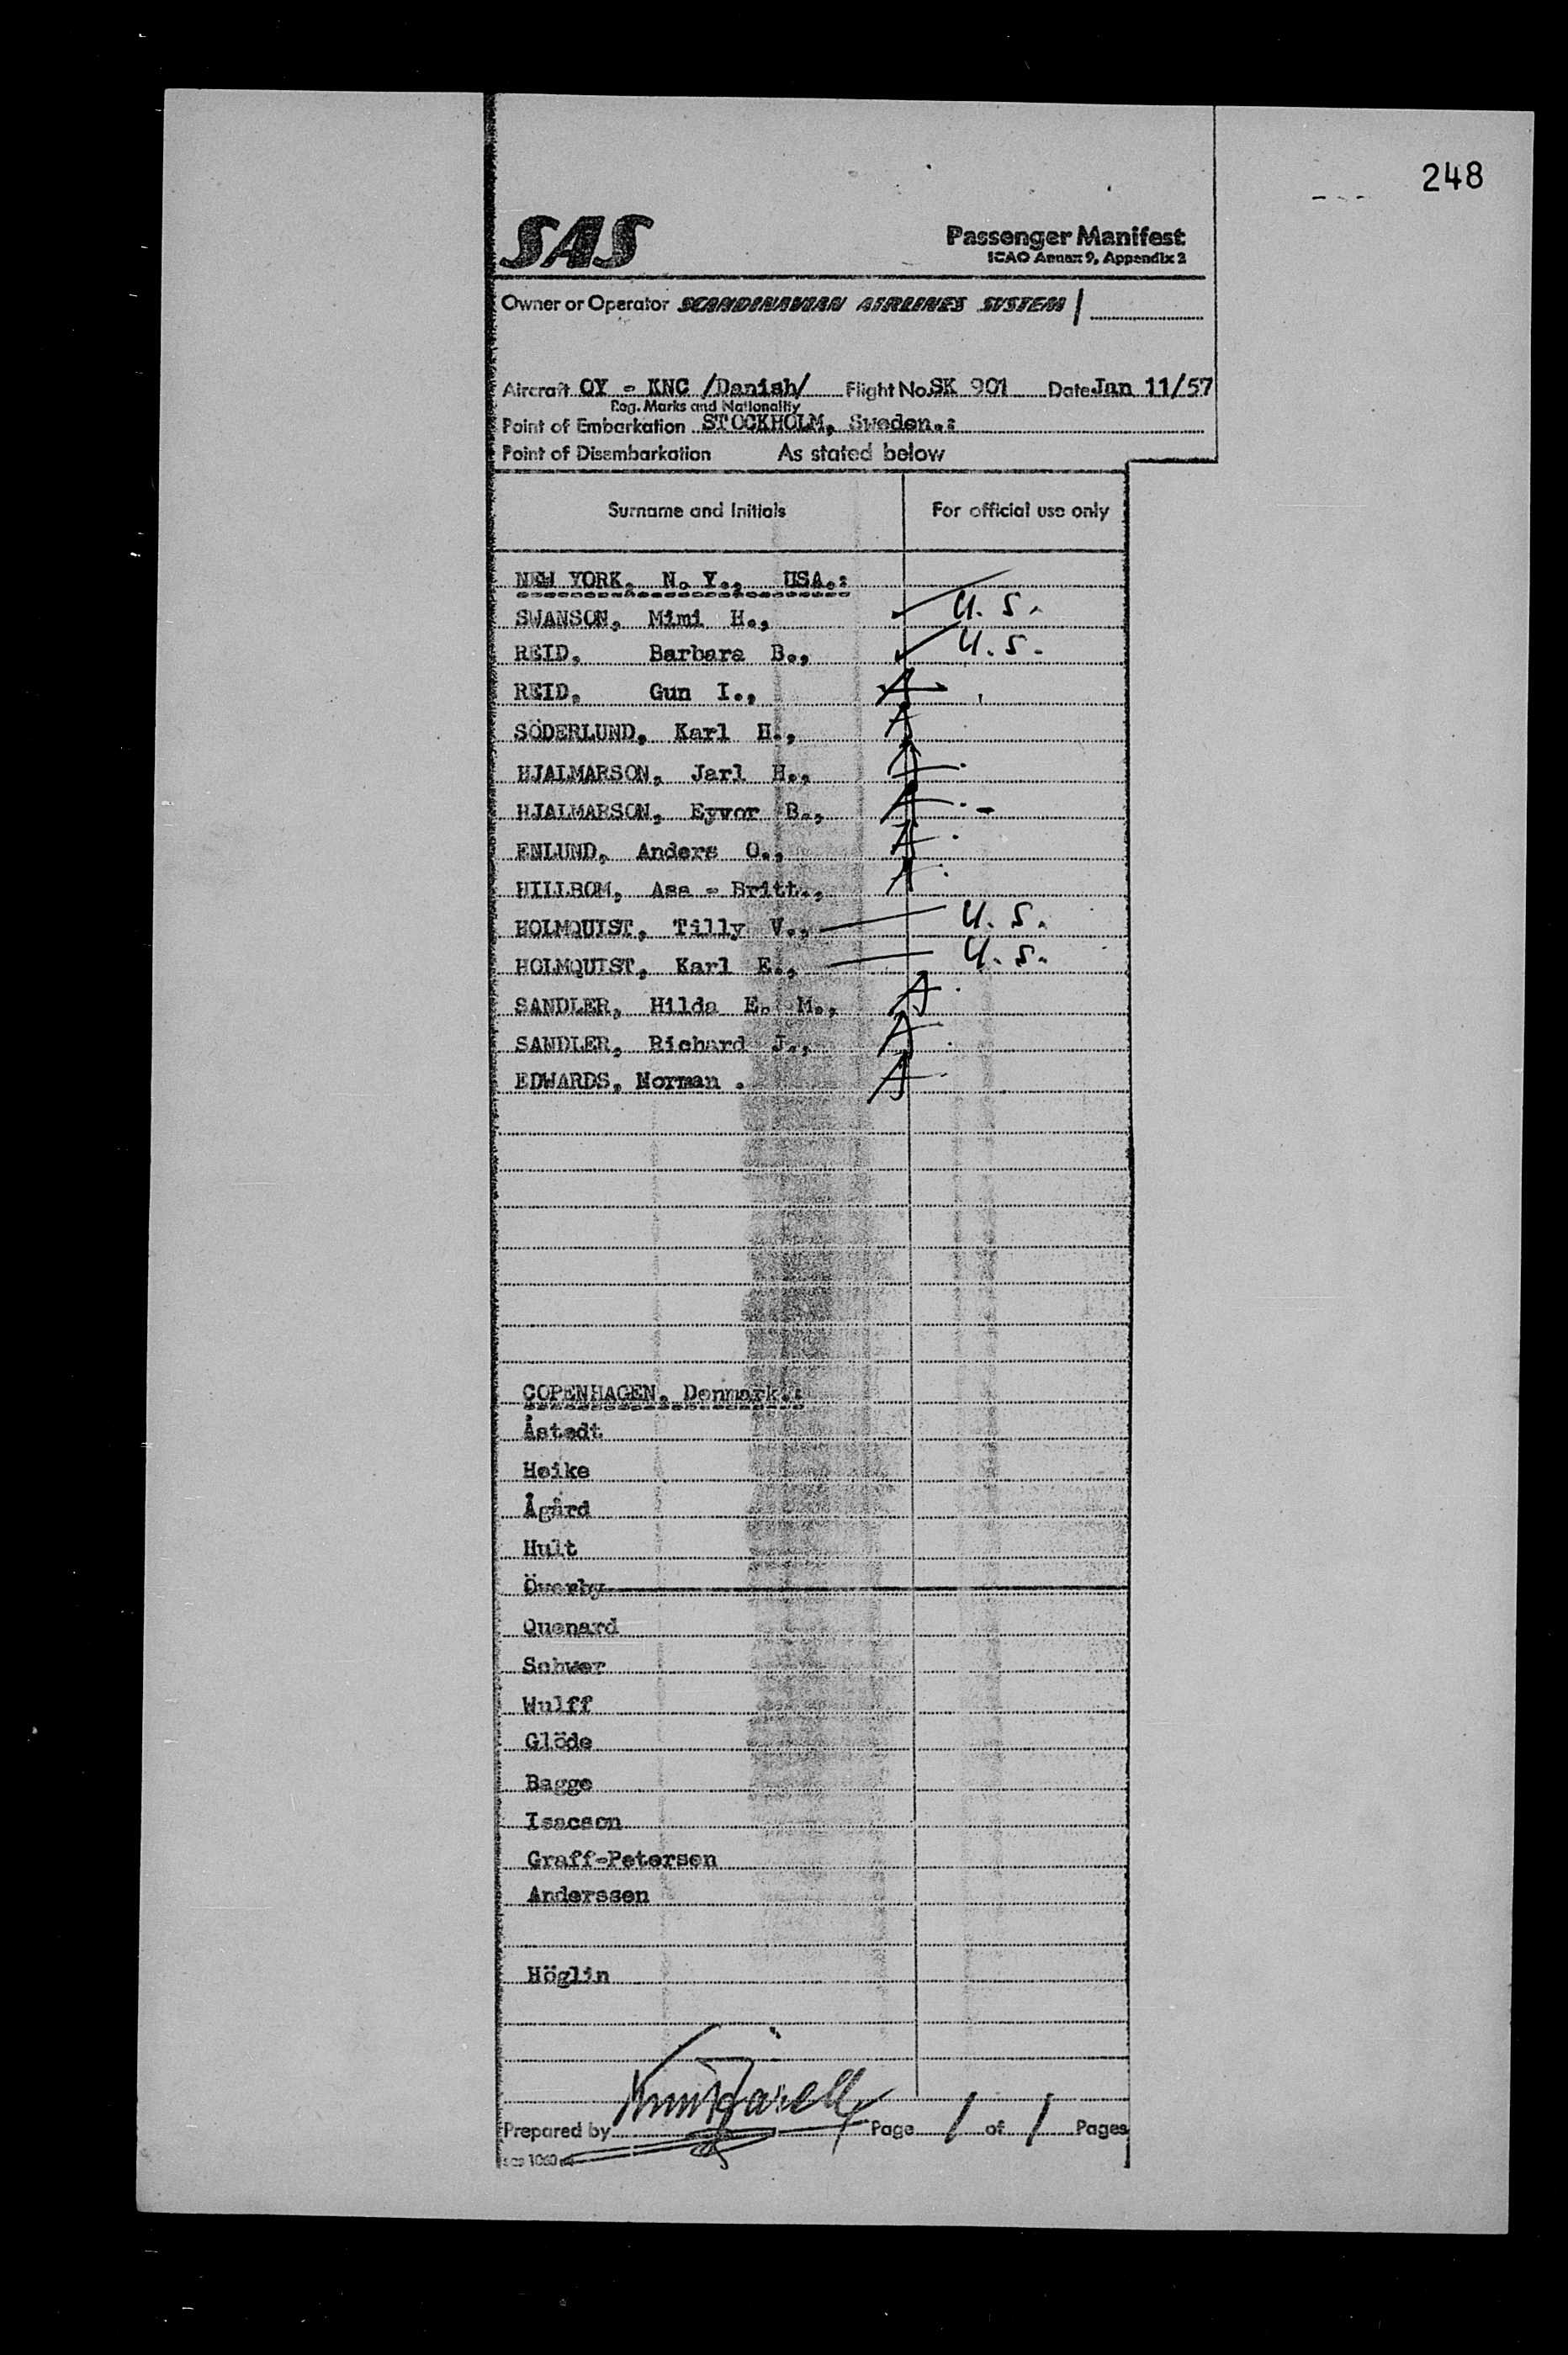 248
SAS
Passenger Manifest
ICAO Annex 9, Appendix 2
Owner or Operator SCANDINAVIAN AIRLINES SYSTEM /
Aircraft OY - KNC /Danish/ Flight No. SK 901 Date Jan 11/57
Reg. Marks and Nationality
Point of Embarkation STOCKHOLM, Sweden.:
Point of Disembarkation As stated below
Surname and Initials For official use only
NEW YORK, N. Y., USA.:
SWANSON, Mimi H., U.S.
REID, Barbara B., U.S.
REID, Gun I., A
SÖDERLUND, Karl H., A
HJALMARSON, Jarl H., A
HJALMARSON, Eyvor B., A
ENLUND, Anders O., A
HILLBOM, Asa - Britt., A
HOLMQUIST, Tilly V., U.S.
HOLMQUIST, Karl E., U.S.
SANDLER, Hilda E. M., A
SANDLER, Richard J., A
EDWARDS, Norman . A
COPENHAGEN, Denmark.:
Åstedt
Heike
Ågård
Hult
Överby
Quenard
Schwer
Wulff
Glöde
Bagge
Isacson
Graff-Petersen
Anderssen
Höglin
Prepared by Page 1 of 1 Pages